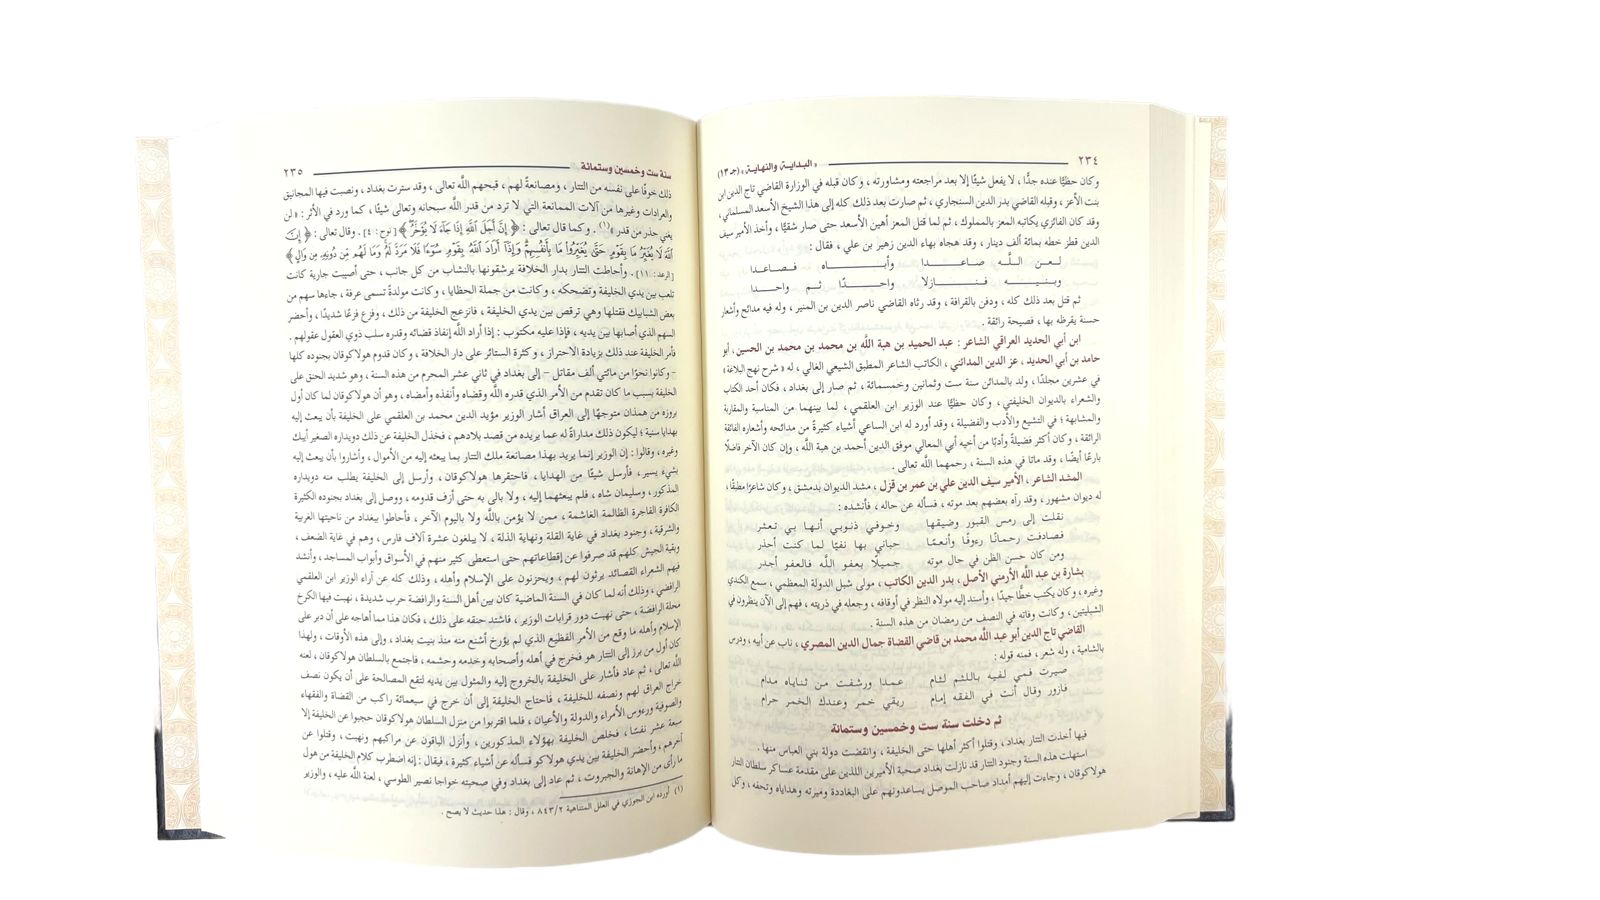 ٢٣٤ «البداية والنهاية» (جـ ١٣)
وكان حظيًّا عنده جدًّا ، لا يفعل شيئًا إلا بعد مراجعته ومشاورته ، وكان قبله في الوزارة القاضي تاج الدين ابن
بنت الأعز ، وقبله القاضي بدر الدين السنجاري ، ثم صارت بعد ذلك كله إلى هذا الشيخ الأسعد المسلماني ,
وقد كان الفائزي يكاتبه المعز بالمملوك ، ثم لما قتل المعز أهين الأسعد حتى صار شقيًّا ، وأخذ الأمير سيف
الدين قطز خطه بمائة ألف دينار ، وقد هجاه بهاء الدين زهير بن علي ، فقال :
لعن اللَّه صاعدا وأباه فصاعدا
وبنيه فنازلا واحدًا ثم واحدا
ثم قتل بعد ذلك كله ، ودفن بالقرافة ، وقد رثاه القاضي ناصر الدين بن المنير ، وله فيه مدائح وأشعار
حسنة يقرظه بها ، فصيحة رائقة .
ابن أبي الحديد العراقي الشاعر : عبد الحميد بن هبة اللَّه بن محمد بن محمد بن الحسين ، أبو
حامد بن أبي الحديد ، عز الدين المدائني ، الكاتب الشاعر المطبق الشيعي الغالي ، له « شرح نهج البلاغة »
في عشرين مجلدًا ، ولد بالمدائن سنة ست وثمانين وخمسمائة ، ثم صار إلى بغداد ، فكان أحد الكتاب
والشعراء بالديوان الخليفتي ، وكان حظيًّا عند الوزير ابن العلقمي ، لما بينهما من المناسبة والمقاربة
والمشابهة ؛ في التشيع والأدب والفضيلة ، وقد أورد له ابن الساعي أشياء كثيرةً من مدائحه وأشعاره الفائقة
الرائقة ، وكان أكثر فضيلةً وأدبًا من أخيه أبي المعالي موفق الدين أحمد بن هبة اللَّه ، وإن كان الآخر فاضلًا
بارعًا أيضًا ، وقد ماتا في هذه السنة ، رحمهما اللَّه تعالى .
المشد الشاعر ، الأمير سيف الدين علي بن عمر بن قزل ، مشد الديوان بدمشق ، وكان شاعرًا مطبقًا ,
له ديوان مشهور ، وقد رآه بعضهم بعد موته ، فسأله عن حاله ، فأنشده :
نقلت إلى رمس القبور وضيقها وخوفي ذنوبي أنها بي تعثر
فصادفت رحمانًا رءوفًا وأنعمًا حباني بها نفيًا لما كنت أحذر
ومن كان حسن الظن في حال موته جميلًا بعفو اللَّه فالعفو أجدر
بشارة بن عبد اللَّه الأرمني الأصل ، بدر الدين الكاتب ، مولى شبل الدولة المعظمي ، سمع الكندي
وغيره ، وكان يكتب خطًّا جيدًا ، وأسند إليه مولاه النظر في أوقافه ، وجعله في ذريته ، فهم إلى الآن ينظرون في
الشبليتين ، وكانت وفاته في النصف من رمضان من هذه السنة .
القاضي تاج الدين أبو عبد اللَّه محمد بن قاضي القضاة جمال الدين المصري ، ناب عن أبيه ، ودرس
بالشامية ، وله شعر ، فمنه قوله :
صيرت فمي لفيه باللثم لثام عمدا ورشفت من ثناياه مدام
فازور وقال أنت في الفقه إمام ريقي خمر وعندك الخمر حرام
ثم دخلت سنة ست وخمسين وستمائة
فيها أخذت التتار بغداد ، وقتلوا أكثر أهلها حتى الخليفة ، وانقضت دولة بني العباس منها .
استهلت هذه السنة وجنود التتار قد نازلت بغداد صحبة الأميرين اللذين على مقدمة عساكر سلطان التتار
هولاكوقان ، وجاءت إليهم أمداد صاحب الموصل يساعدونهم على البغاددة وميرته وهداياه وتحفه ، وكل
سنة ست وخمسين وستمائة ٢٣٥
ذلك خوفًا على نفسه من التتار ، ومصانعةً لهم ، قبحهم اللَّه تعالى ، وقد سترت بغداد ، ونصبت فيها المجانيق
والعرادات وغيرها من آلات الممانعة التي لا ترد من قدر اللَّه سبحانه وتعالى شيئًا ، كما ورد في الأثر : « لن
يغني حذر من قدر »(١) . وكما قال تعالى : ﴿ إِنَّ أَجَلَ اللَّهِ إِذَا جَاءَ لَا يُؤَخَّرُ ﴾ [ نوح : ٤ ] . وقال تعالى : ﴿ إِنَّ
اللَّهَ لَا يُغَيِّرُ مَا بِقَوْمٍ حَتَّى يُغَيِّرُوا مَا بِأَنْفُسِهِمْ وَإِذَا أَرَادَ اللَّهُ بِقَوْمٍ سُوءًا فَلَا مَرَدَّ لَهُ وَمَا لَهُم مِّن دُونِهِ مِن وَالٍ ﴾
[ الرعد : ١١ ] . وأحاطت التتار بدار الخلافة يرشقونها بالنشاب من كل جانب ، حتى أصيبت جارية كانت
تلعب بين يدي الخليفة وتضحكه ، وكانت من جملة الحظايا ، وكانت مولدةً تسمى عرفة ، جاءها سهم من
بعض الشبابيك فقتلها وهي ترقص بين يدي الخليفة ، فانزعج الخليفة من ذلك ، وفزع فزعًا شديدًا ، وأحضر
السهم الذي أصابها بين يديه ، فإذا عليه مكتوب : إذا أراد اللَّه إنفاذ قضائه وقدره سلب ذوي العقول عقولهم .
فأمر الخليفة عند ذلك بزيادة الاحتراز ، وكثرة الستائر على دار الخلافة ، وكان قدوم هولاكوقان بجنوده كلها
- وكانوا نحوًا من مائتي ألف مقاتل - إلى بغداد في ثاني عشر المحرم من هذه السنة ، وهو شديد الحنق على
الخليفة بسبب ما كان تقدم من الأمر الذي قدره اللَّه وقضاه وأنفذه وأمضاه ، وهو أن هولاكوقان لما كان أول
بروزه من همذان متوجهًا إلى العراق أشار الوزير مؤيد الدين محمد بن العلقمي على الخليفة بأن يبعث إليه
بهدايا سنية ؛ ليكون ذلك مداراةً له عما يريده من قصد بلادهم ، فخذل الخليفة عن ذلك دويداره الصغير أيبك
وغيره ، وقالوا : إن الوزير إنما يريد بهذا مصانعة ملك التتار بما يبعثه إليه من الأموال ، وأشاروا بأن يبعث إليه
بشيء يسير ، فأرسل شيئًا من الهدايا ، فاحتقرها هولاكوقان ، وأرسل إلى الخليفة يطلب منه دويداره
المذكور ، وسليمان شاه ، فلم يبعثهما إليه ، ولا بالى به حتى أزف قدومه ، ووصل إلى بغداد بجنوده الكثيرة
الكافرة الفاجرة الظالمة الغاشمة ، ممن لا يؤمن باللَّه ولا باليوم الآخر ، فأحاطوا ببغداد من ناحيتها الغربية
والشرقية ، وجنود بغداد في غاية القلة ونهاية الذلة ، لا يبلغون عشرة آلاف فارس ، وهم في غاية الضعف ،
وبقية الجيش كلهم قد صرفوا عن إقطاعاتهم حتى استعطى كثير منهم في الأسواق وأبواب المساجد ، وأنشد
فيهم الشعراء القصائد يرثون لهم ، ويحزنون على الإسلام وأهله ، وذلك كله عن آراء الوزير ابن العلقمي
الرافضي ، وذلك أنه لما كان في السنة الماضية كان بين أهل السنة والرافضة حرب شديدة ، نهبت فيها الكرخ
محلة الرافضة ، حتى نهبت دور قرابات الوزير ، فاشتد حنقه على ذلك ، فكان هذا مما أهاجه على أن دبر على
الإسلام وأهله ما وقع من الأمر الفظيع الذي لم يؤرخ أشنع منه منذ بنيت بغداد ، وإلى هذه الأوقات ، ولهذا
كان أول من برز إلى التتار هو فخرج في أهله وأصحابه وخدمه وحشمه ، فاجتمع بالسلطان هولاكوقان ، لعنه
اللَّه تعالى ، ثم عاد فأشار على الخليفة بالخروج إليه والمثول بين يديه لتقع المصالحة على أن يكون نصف
خراج العراق لهم ونصفه للخليفة ، فاحتاج الخليفة إلى أن خرج في سبعمائة راكب من القضاة والفقهاء
والصوفية ورءوس الأمراء والدولة والأعيان ، فلما اقتربوا من منزل السلطان هولاكوقان حجبوا عن الخليفة إلا
سبعة عشر نفسًا ، فخلص الخليفة بهؤلاء المذكورين ، وأنزل الباقون عن مراكبهم ونهبت ، وقتلوا عن
آخرهم ، وأحضر الخليفة بين يدي هولاكو فسأله عن أشياء كثيرة ، فيقال : إنه اضطرب كلام الخليفة من هول
ما رأى من الإهانة والجبروت ، ثم عاد إلى بغداد وفي صحبته خواجا نصير الطوسي ، لعنة اللَّه عليه ، والوزير
(١) أورده ابن الجوزي في العلل المتناهية ٨٤٣/٢ ، وقال : هذا حديث لا يصح .